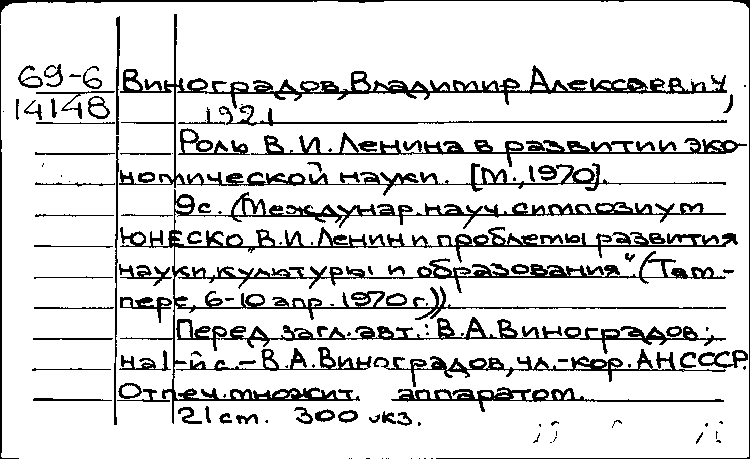 69-6 Виноградов, Владимир Алексеевич,
14148 1921
Роль В.И. Ленина в развитии эко-
номической науки. [М., 1970].
9с. (Междунар. науч. симпозиум
ЮНЕСКО „В.И. Ленин и проблемы развития
науки, культуры и образования" (Там-
пере, 6-10 апр. 1970 г.)).
Перед загл. авт.: В.А. Виноградов;
на 1-й с. - В.А. Виноградов, чл.-кор. АН СССР.
Отпеч. множит. аппаратом.
21 ст. 300 экз.